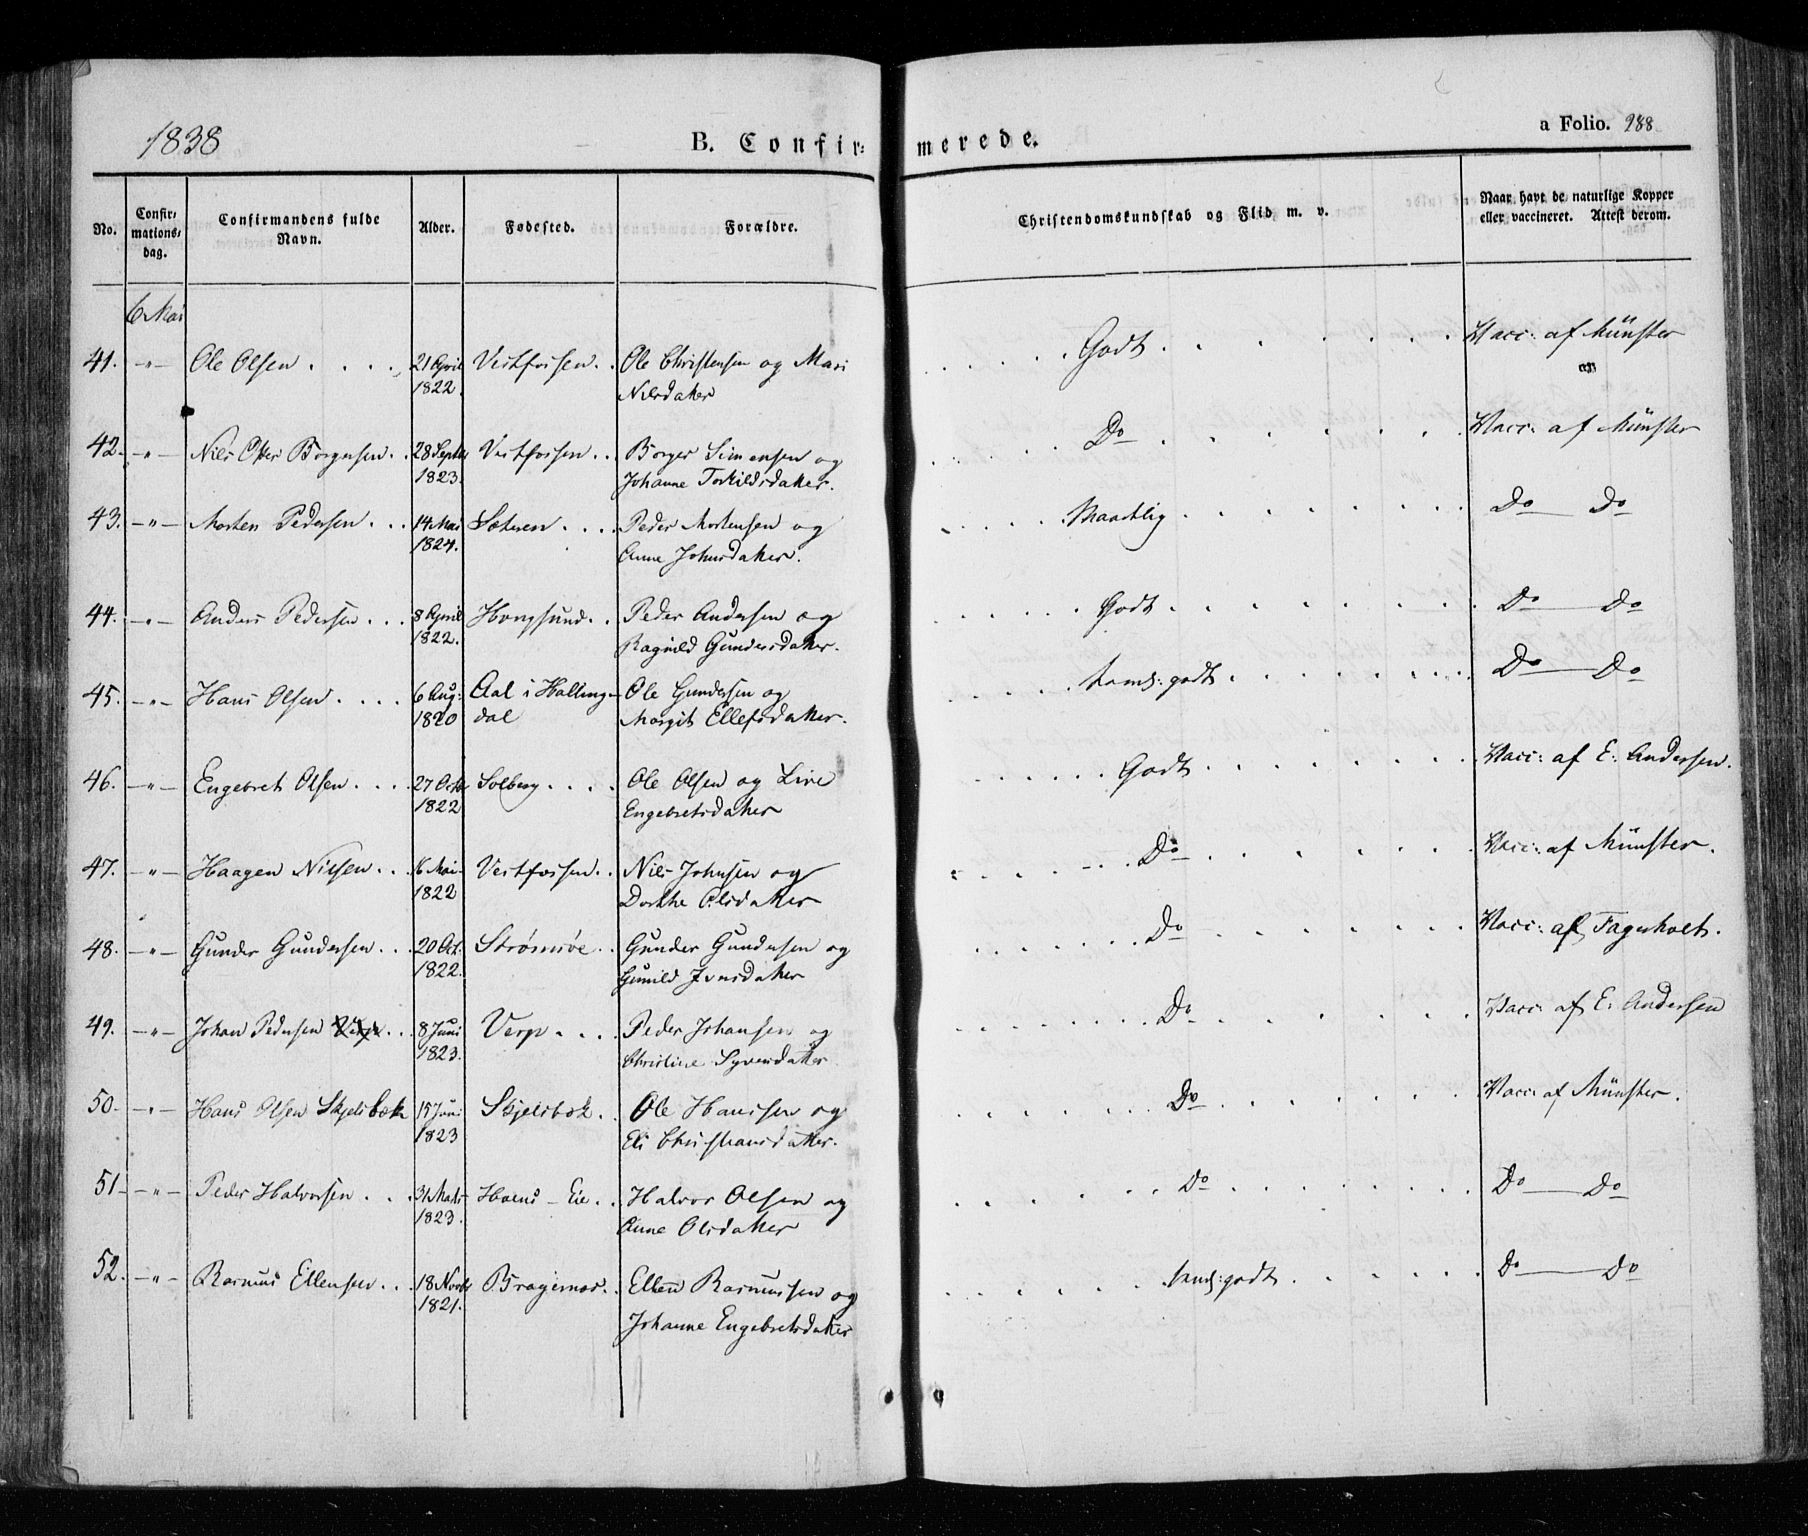 1838
B. Confir- merede.
a Folio. 288
No.
Confir-
mations-
dag.
Confirmandens fulde
Navn.
Alder.
Fødested.
Forældre.
Christendomskundskab og Flid m. v.
Naar havt de naturlige Kopper
eller vaccineret. Attest derom.
6 Mai
41. -"- Ole Olsen . . . . 21 April Vestfossen . . Ole Christensen og Mari . . . . Godt . . . . . . . Vacc: af Münster
1822. Nilsdatter
42. -"- Nils Otter Borgersen . . 28 Septbr Vestfossen . . Borger Simensen og . . . . Do . . . . . . . Vacc: af Münster
1823. Johanne Torkildsdatter.
43. -"- Morten Pedersen . . . 14 Mai Sæteren . . . . Peder Mortensen og . . . . Maadelig . . . . . . . Do — Do
1824. Anne Johnsdatter.
44. -"- Anders Pedersen . . . 8 April Hougsund . . Peder Andersen og . . . . Godt . . . . . . . Do — Do
1822. Ragnild Gundersdatter.
45. -"- Hans Olsen . . . . 6 Aug: Aal i Halling- Ole Gundersen og . . . . temd: godt . . . . . . . Do — Do
1820 dal Margit Ellefsdatter.
46. -"- Engebret Olsen . . . . 27 Octb Solberg . . . . Ole Olsen og Live . . . . Godt . . . . . . . Vacc: af E: Andersen.
1822 Engebretsdatter
47. -"- Haagen Nilsen . . . 16 Mai Vestfossen . . Nils Johnsen og . . . . Do . . . . . . . Vacc: af Münster.
1822 Dorthe Olsdatter
48. -"- Gunder Gundersen . . . 20 Oct. Strømsøe . . Gunder Gundersen og . . . . Do . . . . . . . Vacc: af Fagerholt.
1822. Gunild Jonsdatter
49. -"- Johan Pedersen . . . 8 Juni Verp . . . . Peder Johansen og . . . . Do . . . . . . . Vacc: af E: Andersen
1823. Christine Syversdatter
50. -"- Hans Olsen Skjelsbæk 15 Juni Skjelsbæk . Ole Hanssen og . . . . Do . . . . . . . Vacc: af Münster.
1823 Eli Christiansdatter.
51 -"- Peder Halvorsen . . . 31 Marts Hoens-Eie . . Halvor Olsen og . . . . Do . . . . . . . Do — Do
1823. Anne Olsdatter
52. -"- Rasmus Ellensen . . 18 Novbr Bragernæs . Ellen Rasmussen og . . . . temd: godt . . . . . . . Do — Do
1821. Johanne Engebretsdatter